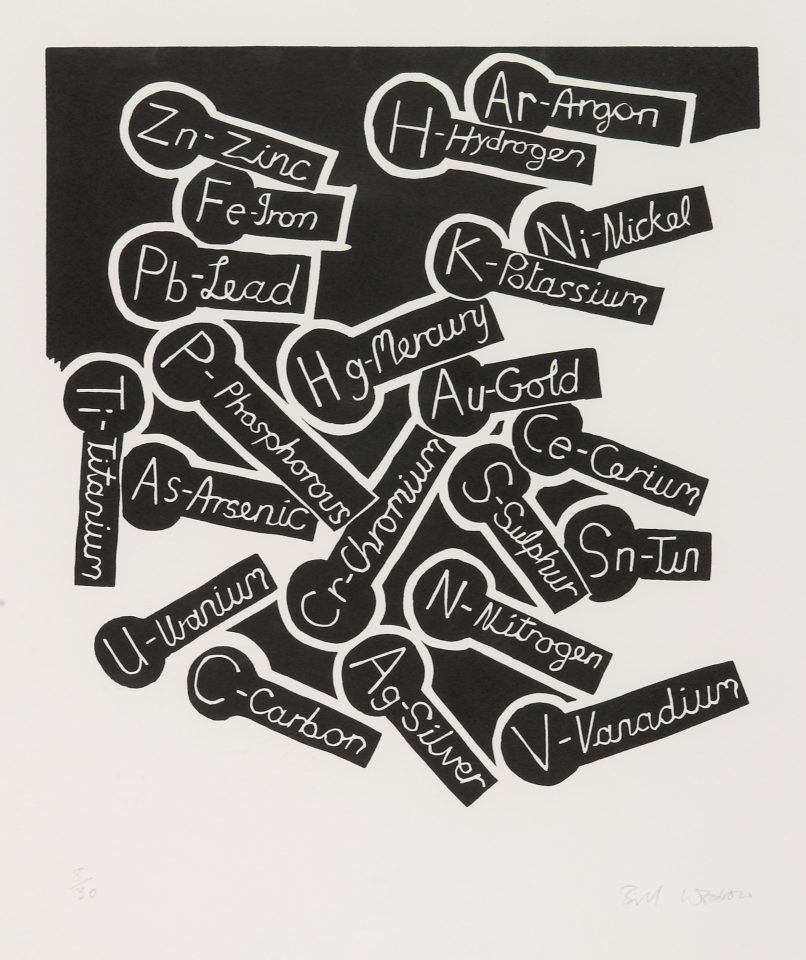 Ar-Argon
H-Hydrogen
Zn-Zinc
Fe-Iron
Ni-Nickel
K-Potassium
Pb-Lead
Hg-Mercury
P-Phosphorous
Au-Gold
Ti-Titanium
Ce-Cerium
As-Arsenic
Cr-Chromium
S-Sulphur
Sn-Tin
U-Uranium
N-Nitrogen
C-Carbon
Ag-Silver
V-Vanadium
8/30